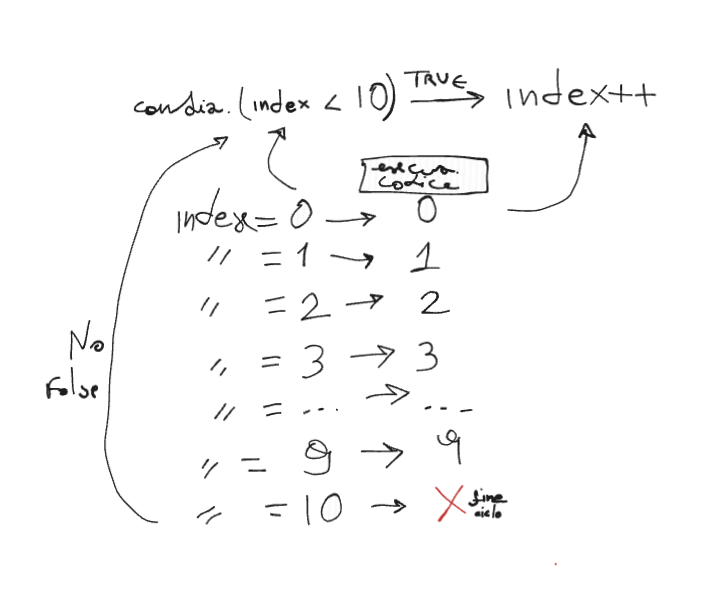 condiz. (index < 10) TRUE → index++
esecuz. codice
index = 0 → 0
〃 = 1 → 1
〃 = 2 → 2
〃 = 3 → 3
〃 = ... → ...
〃 = 9 → 9
〃 = 10 → X fine ciclo
No
False